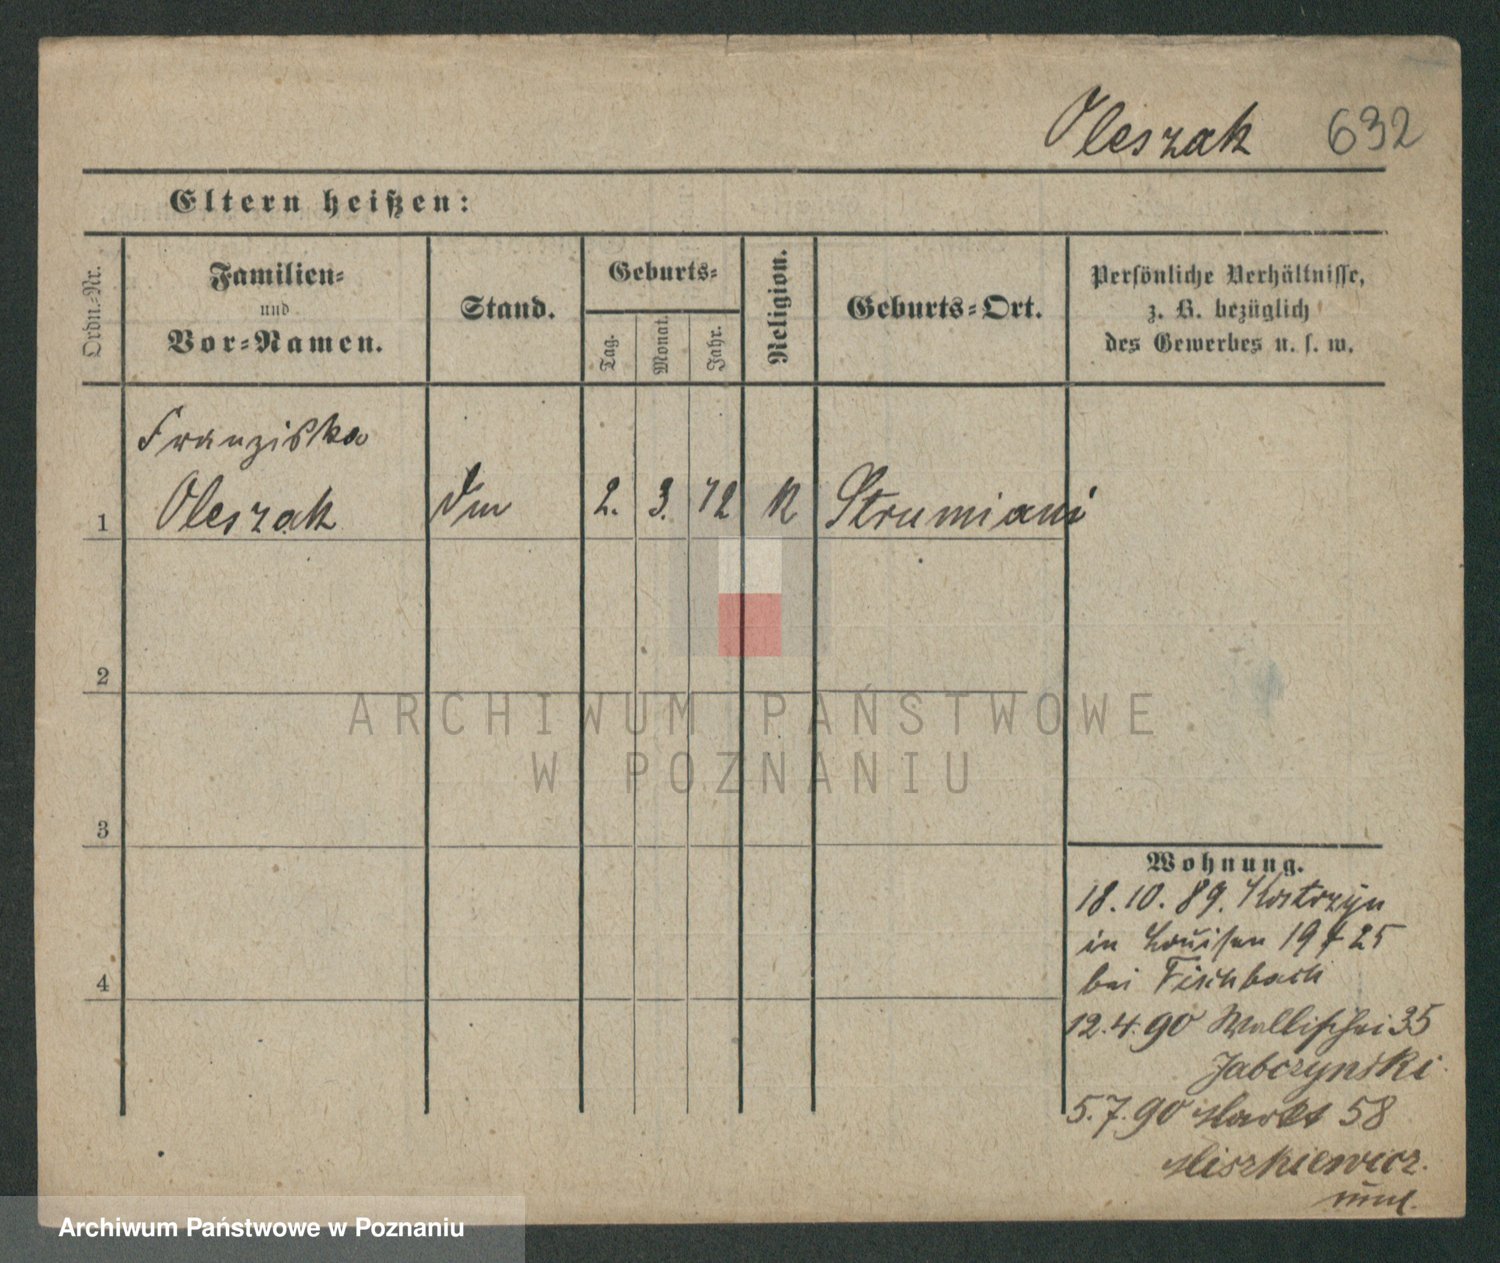 Oleszak 632
Eltern heißen:
Ordn.-Nr.
Familien-
und
Vor-Namen.
Stand.
Geburts-
Tag.
Monat.
Jahr.
Religion.
Geburts-Ort.
Persönliche Verhältnisse,
z. B. bezüglich
des Gewerbes u. s. w.
Franziska
1 Oleszak 2. 3. 72 K Strumiani
2
3
4
Wohnung.
18.10.89. Kostrzyn
in Louisen 19 25
bei Fischbach
12.4.90 Wallischei 35
Jabczynski
5.7.90 Markt 58
Miszkiewicz.
ARCHIWUM PAŃSTWOWE
W POZNANIU
Archiwum Państwowe w Poznaniu